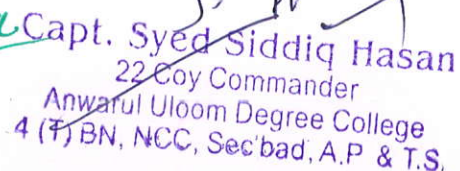 Capt. Syed Siddiq Hasan
22 Coy Commander
Anwarul Uloom Degree College
4 (T) BN, NCC, Sec'bad, A.P & T.S.